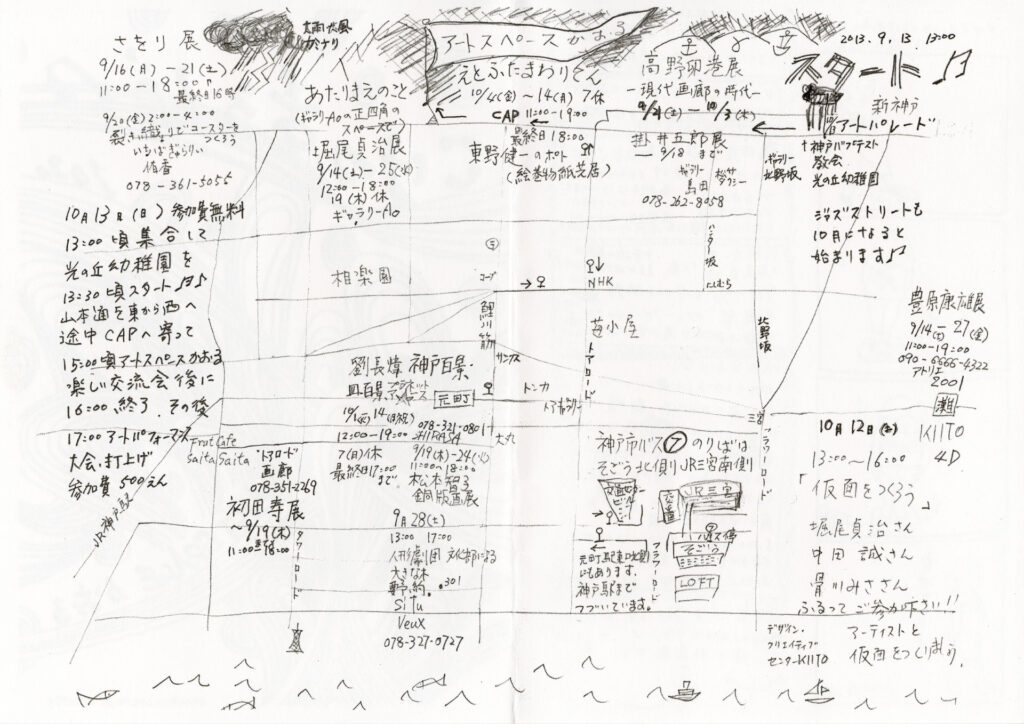 さをり展
9/16(月)-21(土)
11:00-18:00
最終日16時
9/20(金)2:00-4:00
裂き織りでコースターをつくろう
いちばぎゃらりい
侑香
078-361-5055
アートスペースかおる
えとふたまわりてん
10/4(金)~14(月)7休
11:00-19:00
CAP
最終日18:00
東野健一のポト
(絵巻物紙芝居)
あたりまえのこと
(ギャラリーAoの正四角の
スペースで)
堀尾貞治展
9/14(土)-25(水)
12:00-18:00
19(木)休
ギャラリーAo
高野卯港展
-現代画廊の時代-
掛井五郎展
9/18まで
ギャラリー
島田
078-262-8058
ギャラリー
北野坂
2013.9.13.13:00
スタート
新神戸
アートパレード
神戸バプテスト
教会
光の丘幼稚園
ジャズストリートも
10月になると
始まります♪
10月13日(日)参加費無料
13:00頃集合して
光の丘幼稚園を
13:30頃スタート
山本通を東から西へ
途中CAPへ寄って
15:00頃アートスペースかおる
楽しい交流会後に
16:00終了.その後
17:00アートパフォーマンス
大会、打上げ
参加費500えん
JR神戸駅
相楽園
コープ
鯉川筋
NHK
ハンター坂
にしむら
苺小屋
トアロード
北野坂
サンクス
トンカ
トアギャラリー
元町
大丸
三宮
フラワーロード
劉長煒 神戸百景
10/1(火)-14(月祝)
12:00-19:00
7(月)休
最終日17:00
まで.
078-321-0801
9/19(木)-24(火)
11:00~18:00
銅版画展
Fruit Cafe
Saita Saita
トアロード
画廊
078-351-2269
初田寿展
~9/19(木)
11:00~18:00
タワーロード
9月28(土)
13:00 17:00
人形劇団
大きな木
.301
Si tu
Veux
078-327-0727
神戸市バス⑦のりばは
そごう北側JR三宮南側
交通センター
ビル
JR三宮
バス停
そごう
LOFT
フラワーロード
にもあります。
神戸駅まで
つづいています。
豊原康雄展
9/14(土)-27(金)
11:00-19:00
090-6666-4322
アトリエ
2001
灘
10月12日(土)
KIITO
4D
13:00~16:00
「仮面をつくろう」
堀尾貞治さん
中田誠さん
骨川みささん
ふるってご参加下さい!!
デザイン・
クリエイティブ
センターKIITO
アーティストと
仮面をつくりましょう.